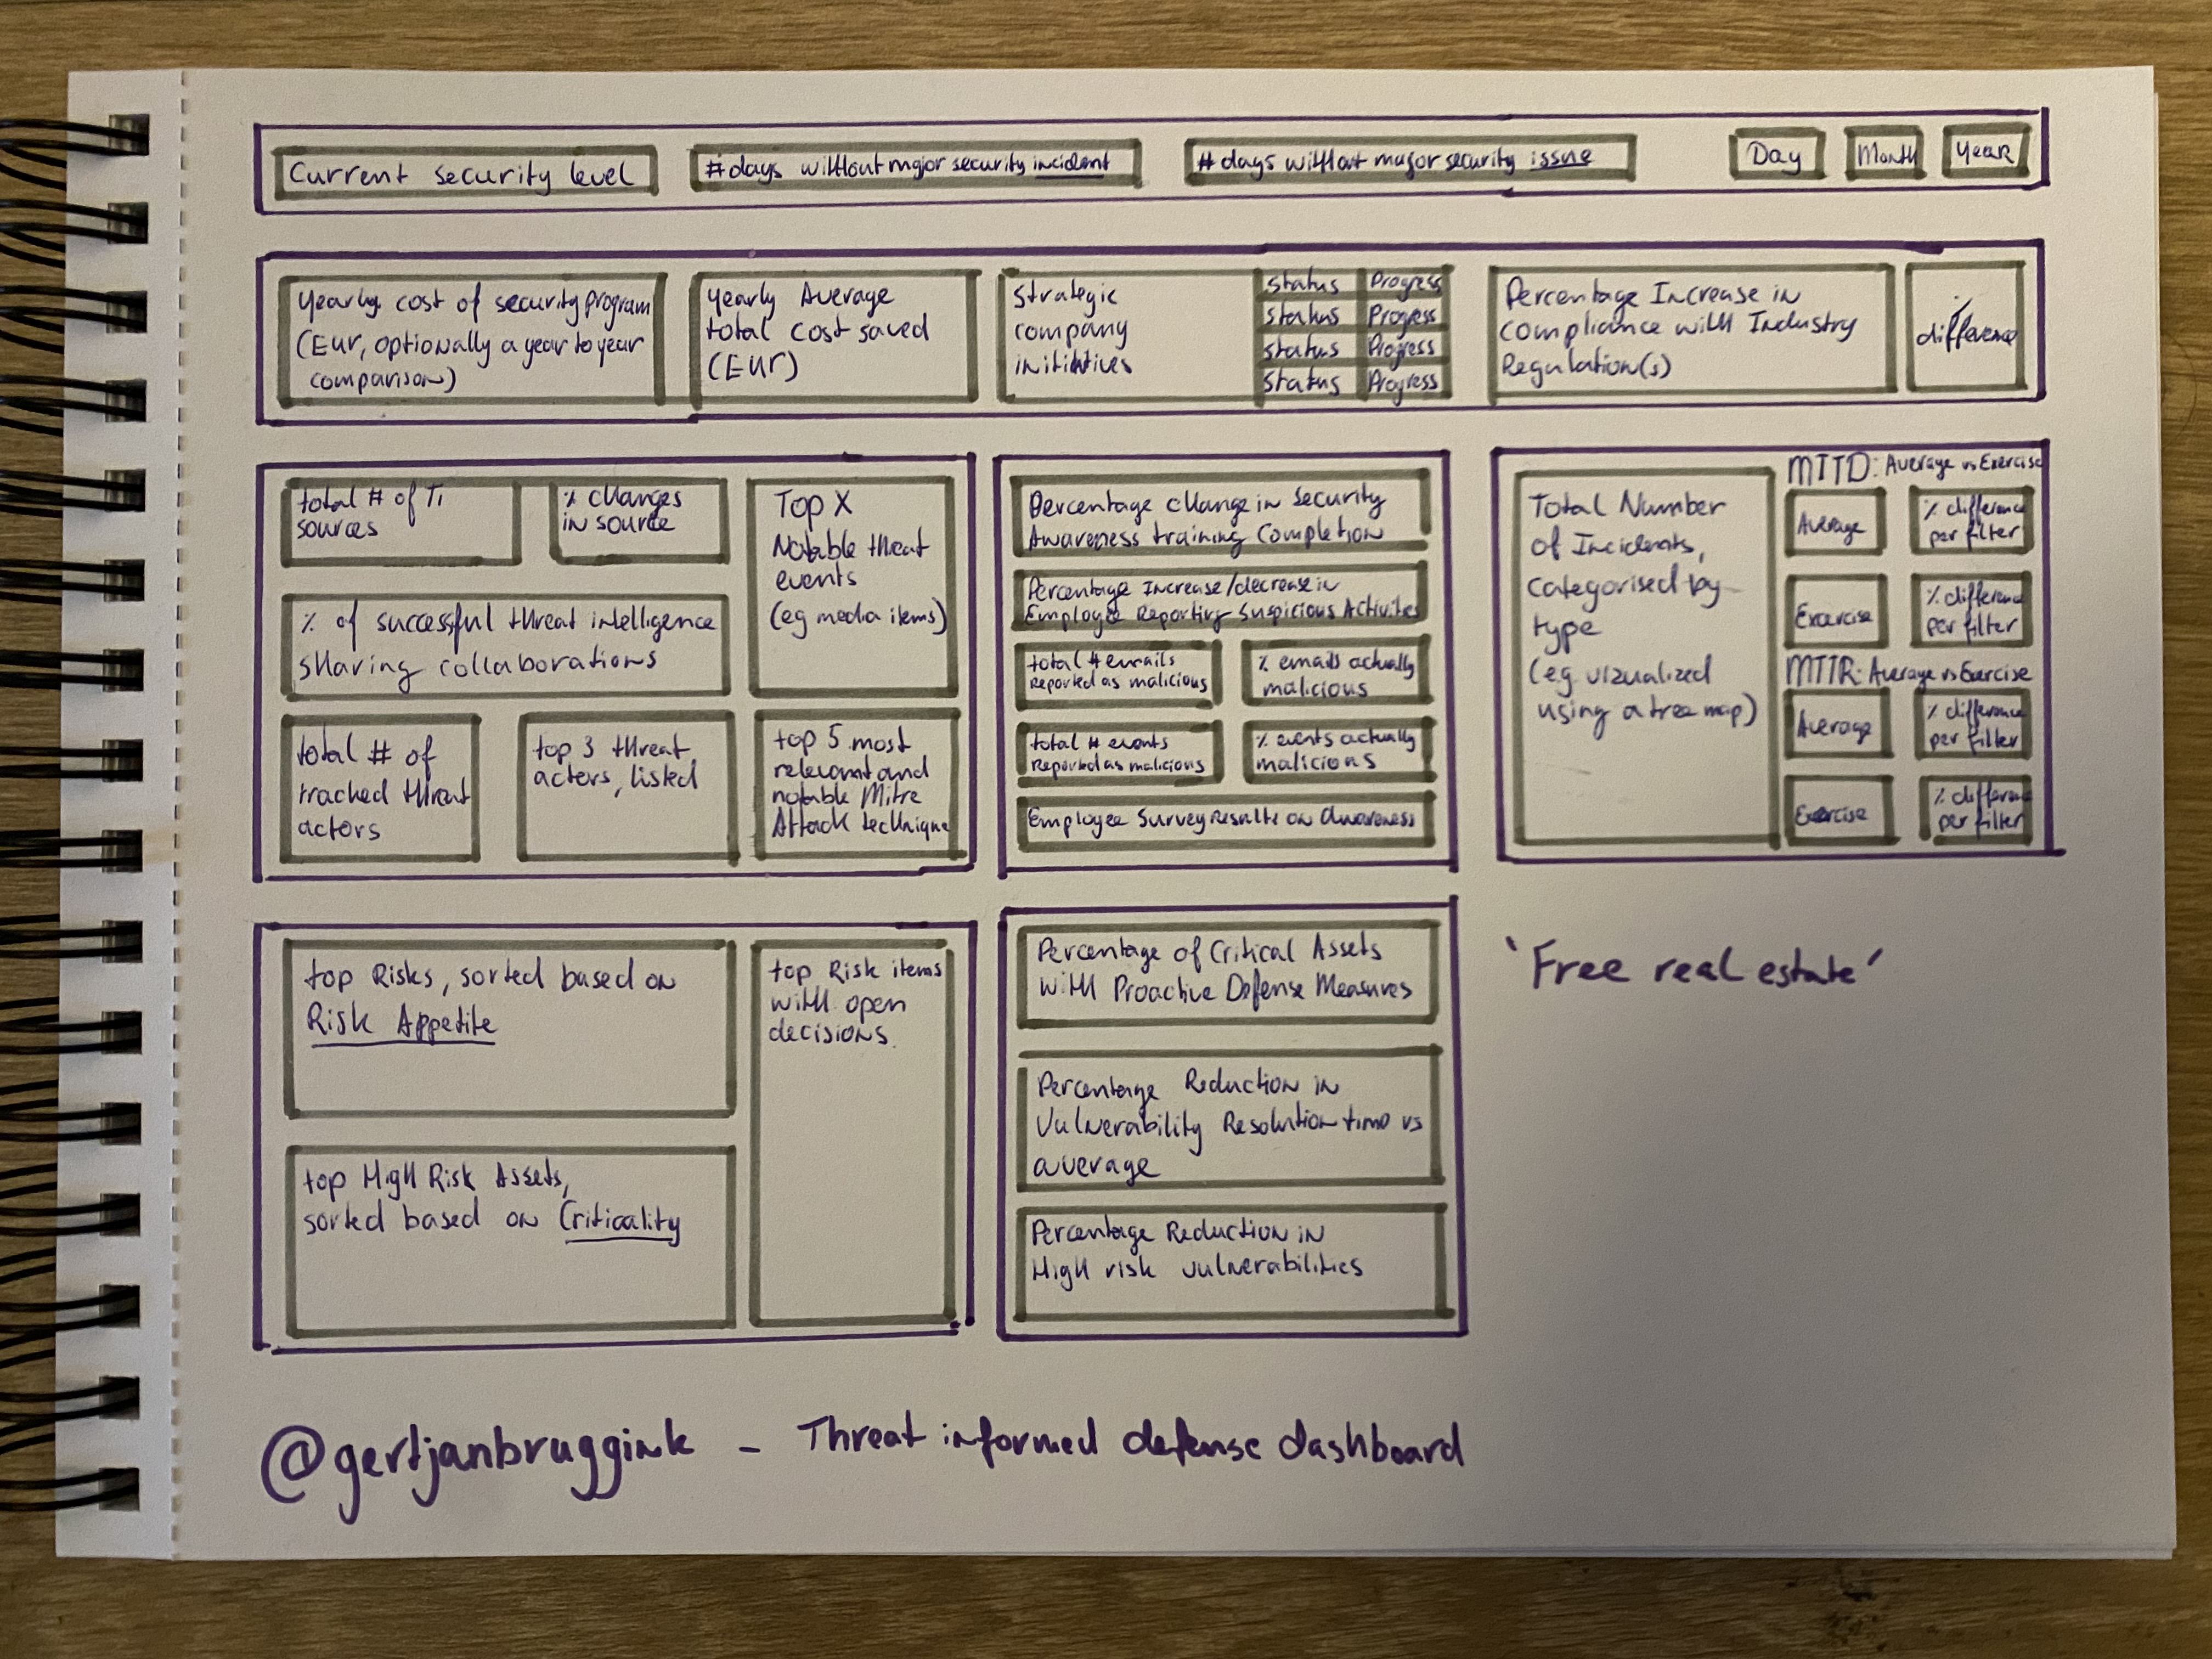 Current security level
#days without major security incident
#days without major security issue
Day
Month
Year
yearly cost of security program
(Eur, optionally a year to year
comparison)
yearly Average
total cost saved
(EUR)
strategic
company
initiatives
status Progress
status Progress
status Progress
status Progress
Percentage Increase in
compliance with Industry
Regulation(s)
%
difference
total # of TI
sources
% changes
in source
Top X
Notable threat
events
(eg media items)
% of successful threat intelligence
sharing collaborations
total # of
tracked threat
actors
top 3 threat
actors, listed
top 5 most
relevant and
notable Mitre
Attack technique
Percentage change in Security
Awareness training Completion
Percentage Increase/decrease in
Employee Reporting Suspicious Activities
total # emails
reported as malicious
% emails actually
malicious
total # events
Reported as malicious
% events actually
malicious
Employee Survey Results on Awareness
Total Number
of Incidents,
categorised by
type
(e.g. vizualized
using a tree map)
MTTD: Average vs Exercise
Average
% difference
per filter
Exercise
% difference
per filter
MTTR: Average vs Exercise
Average
% difference
per filter
Exercise
% differenc
per filter
top Risks, sorted based on
Risk Appetite
top High Risk Assets,
sorted based on Criticality
top Risk items
with open
decisions.
Percentage of Critical Assets
with Proactive Defense Measures
Percentage Reduction in
Vulnerability Resolution time vs
average
Percentage Reduction in
High risk vulnerabilities
'Free real estate'
@gertjanbruggink - Threat informed defense dashboard